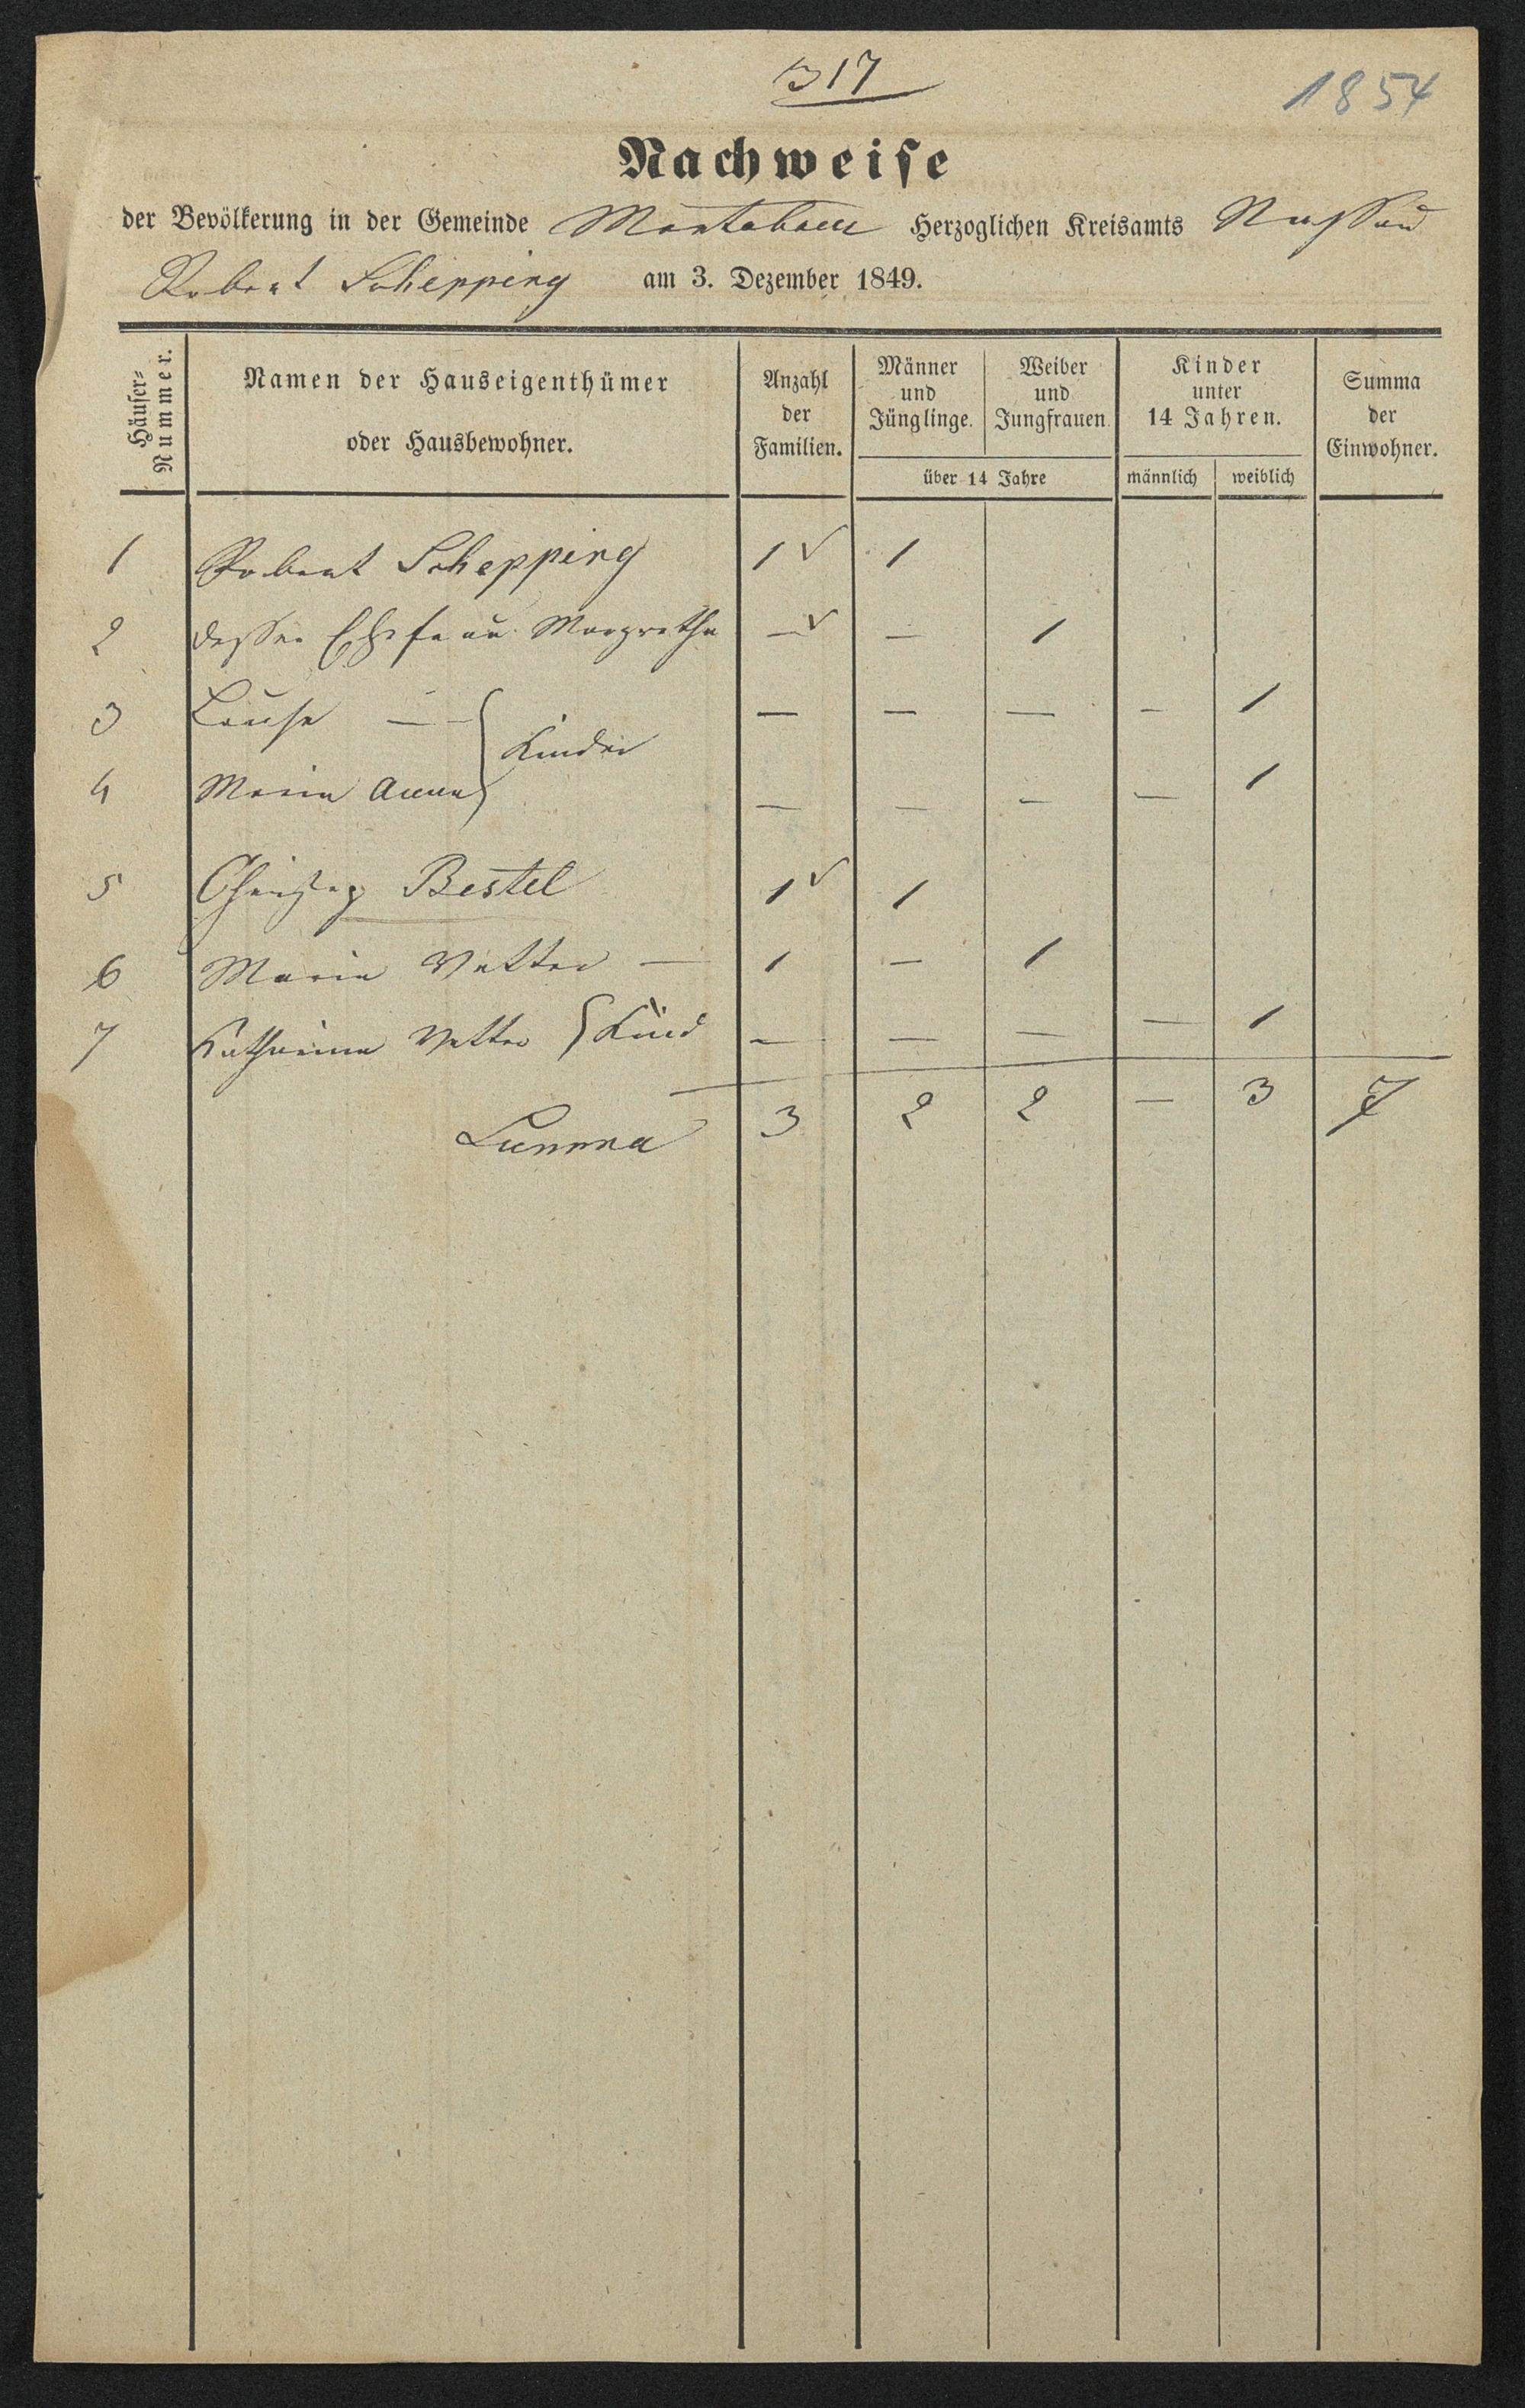 317
1854
Nachweise
der Bevölkerung in der Gemeinde Montabaur Herzoglichen Kreisamts Nassau
Robert Schepping am 3. Dezember 1849.
Häuser-Nummer.
Namen der Hauseigenthümer
oder Hausbewohner.
Anzahl
der
Familien.
Männer
und
Jünglinge.
Weiber
und
Jungfrauen.
über 14 Jahre
Kinder
unter
14 Jahren.
männlich
weiblich
Summa
der
Einwohner.
1 Robert Schepping 1 1
2 dessen Ehefrau Margretha — — 1
3 Louise — — — — — 1
Kinder
4 Maria Anna — — — — 1
5 Bestel 1 1
6 Maria Vetter — 1 — 1
7 Katharina Vetter Kind — — — — 1
Summa 3 2 2 — 3 7